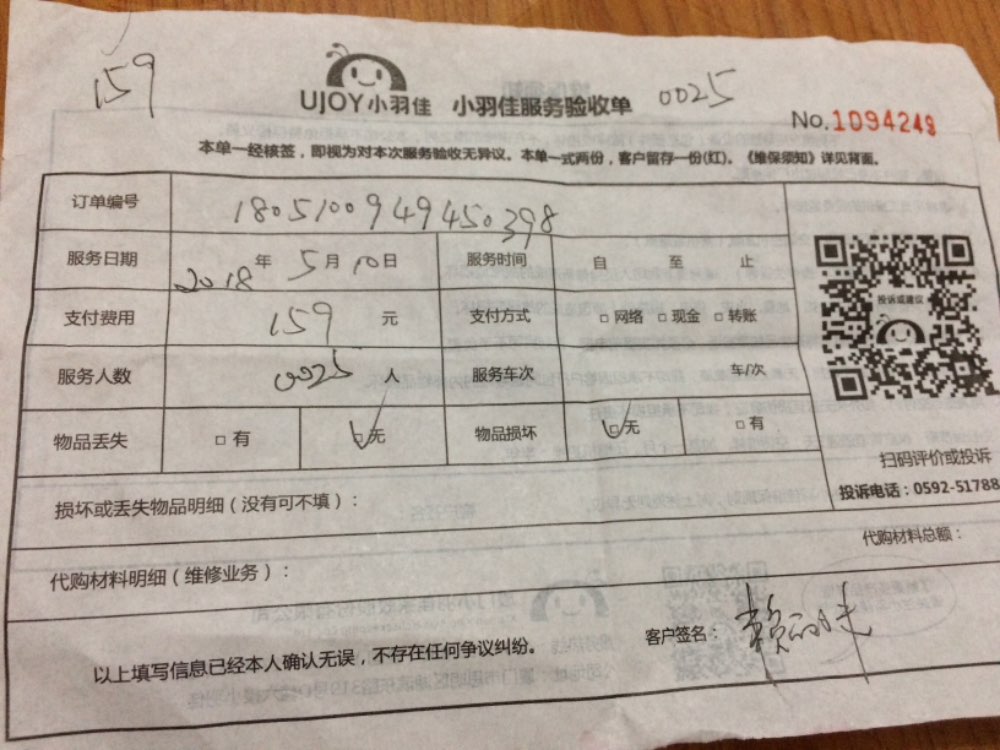 159
UJOY小羽佳 小羽佳服务验收单 0025
No.1094249
本单一经核签，即视为对本次服务验收无异议。本单一式两份，客户留存一份(红)。《维保须知》详见背面。
订单编号 1805100949450398
服务日期 2018年5月10日 服务时间 自 至 止
支付费用 159 元 支付方式 □网络 □现金 □转账
服务人数 0025 人 服务车次 车/次
物品丢失 □有 ☑无 物品损坏 ☑无 □有
投诉或建议
扫码评价或投诉
投诉电话：0592-51788
损坏或丢失物品明细（没有可不填）：
代购材料总额：
代购材料明细（维修业务）：
以上填写信息已经本人确认无误，不存在任何争议纠纷。
客户签名：